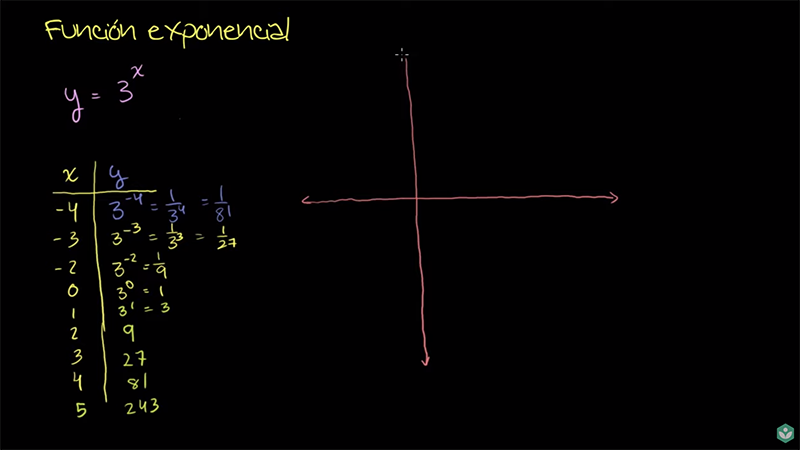 Función exponencial
y = 3^x
x y
-4 3^-4 = 1/3^4 = 1/81
-3 3^-3 = 1/3^3 = 1/27
-2 3^-2 = 1/9
0 3^0 = 1
1 3^1 = 3
2 9
3 27
4 81
5 243